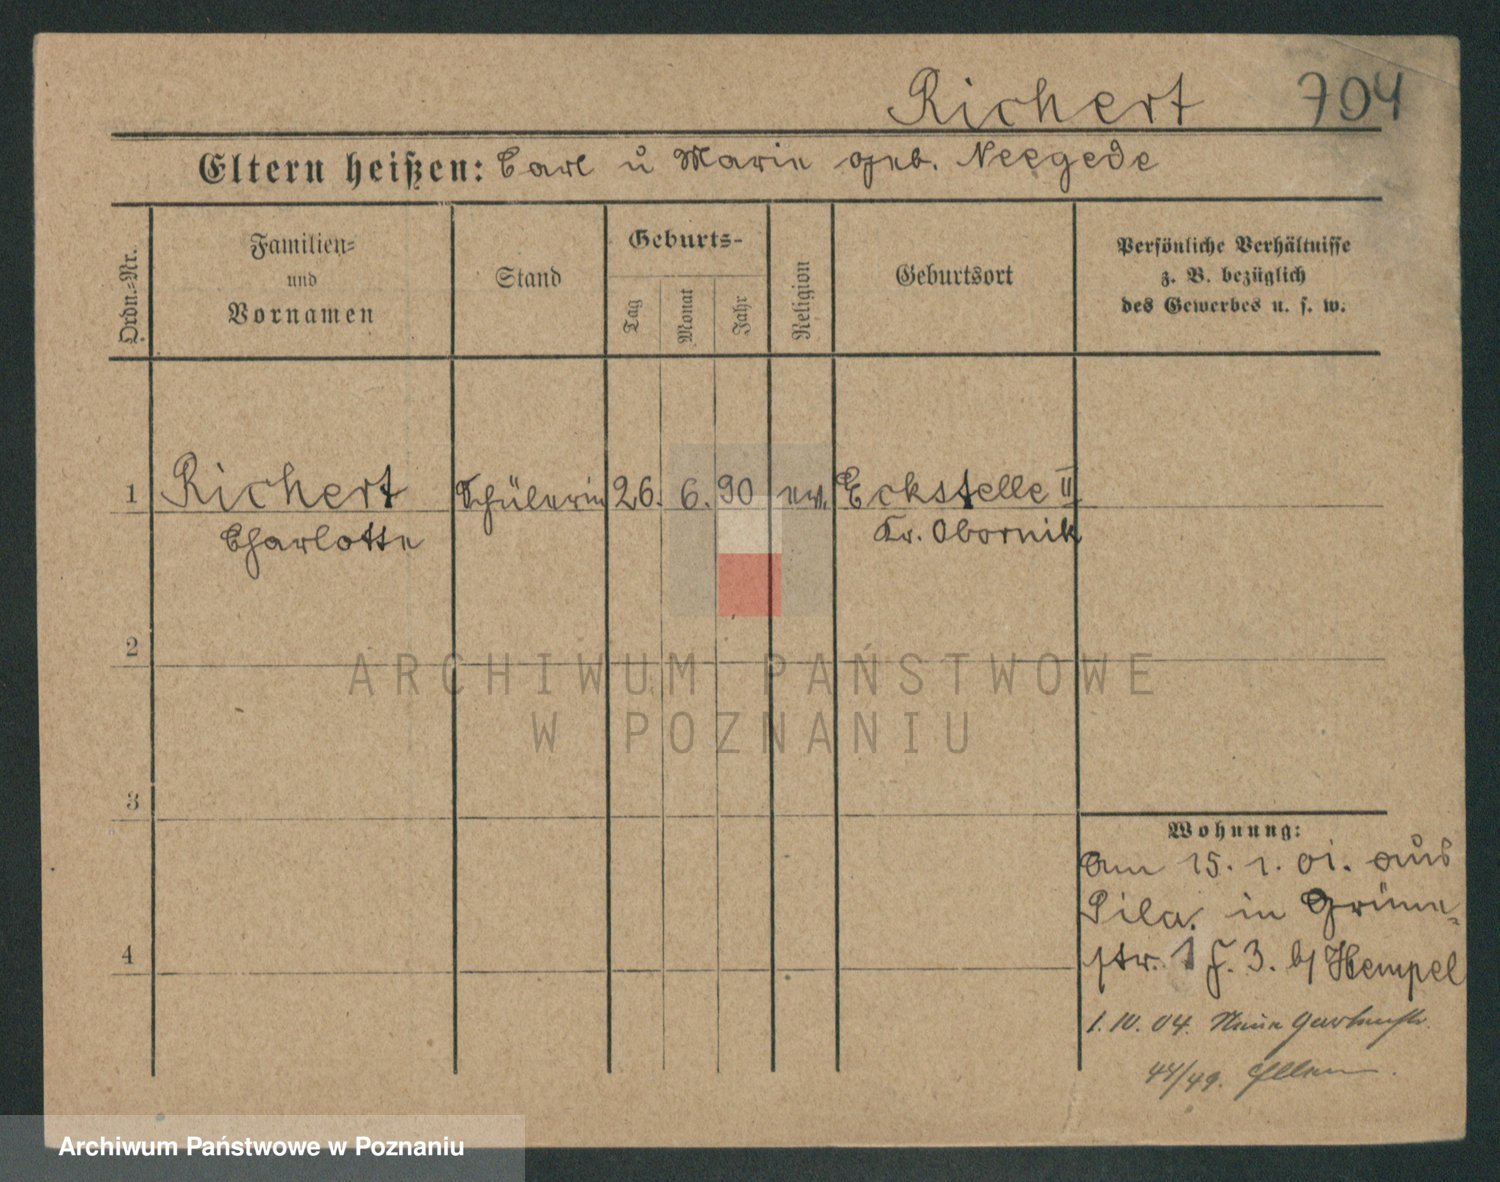 Richert 704
Eltern heißen: Carl u Marie geb. Neegede
Ordn.-Nr.
Familien-
und
Vornamen
Stand
Geburts-
Tag
Monat
Jahr
Religion
Geburtsort
Persönliche Verhältnisse
z. B. bezüglich
des Gewerbes u. s. w.
1 Richert Schülerin 26. 6. 90 ev. Eckstelle II
Charlotte Kr. Obornik
2
ARCHIWUM PAŃSTWOWE
W POZNANIU
3
Wohnung:
Am 15. 1. 01. aus
Pila. in Grüne-
4 str. 1 F. 3. b/ Hempel
1. 10. 04. Neue Gartenstr.
44/49.
Archiwum Państwowe w Poznaniu